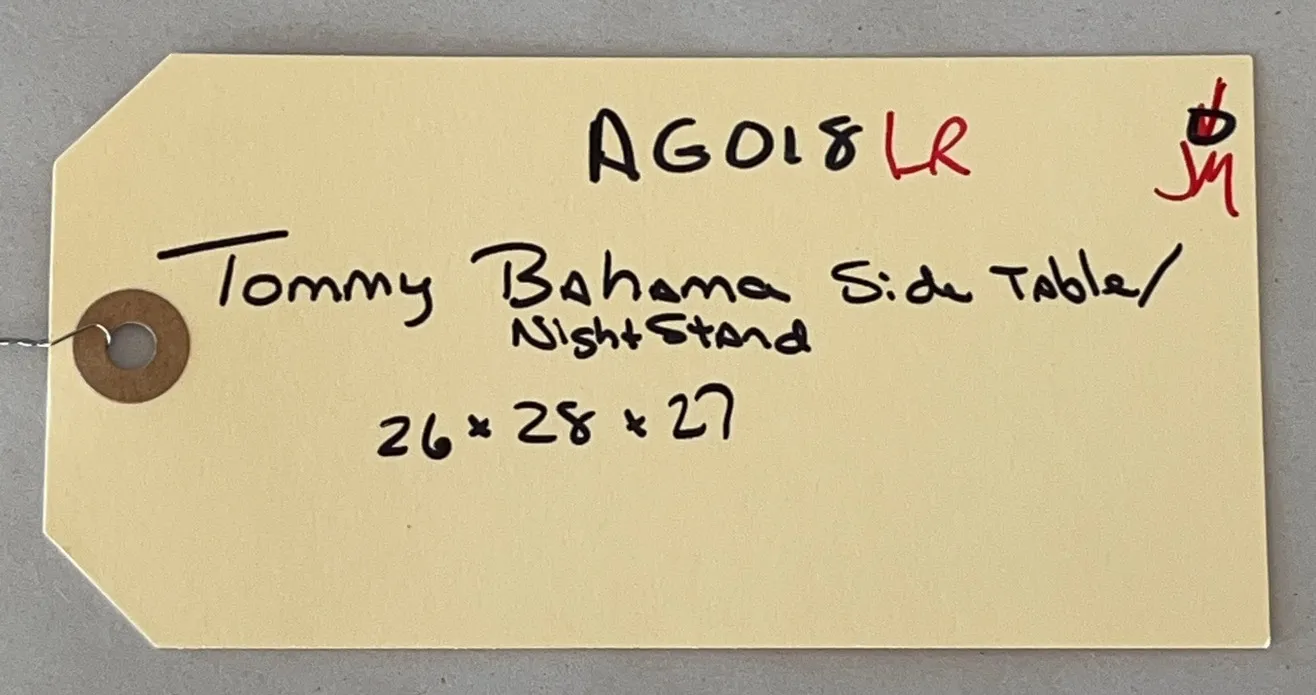 AG018 LR
D
JM
Tommy Bahama Side Table/
NightStand
26 x 28 x 27